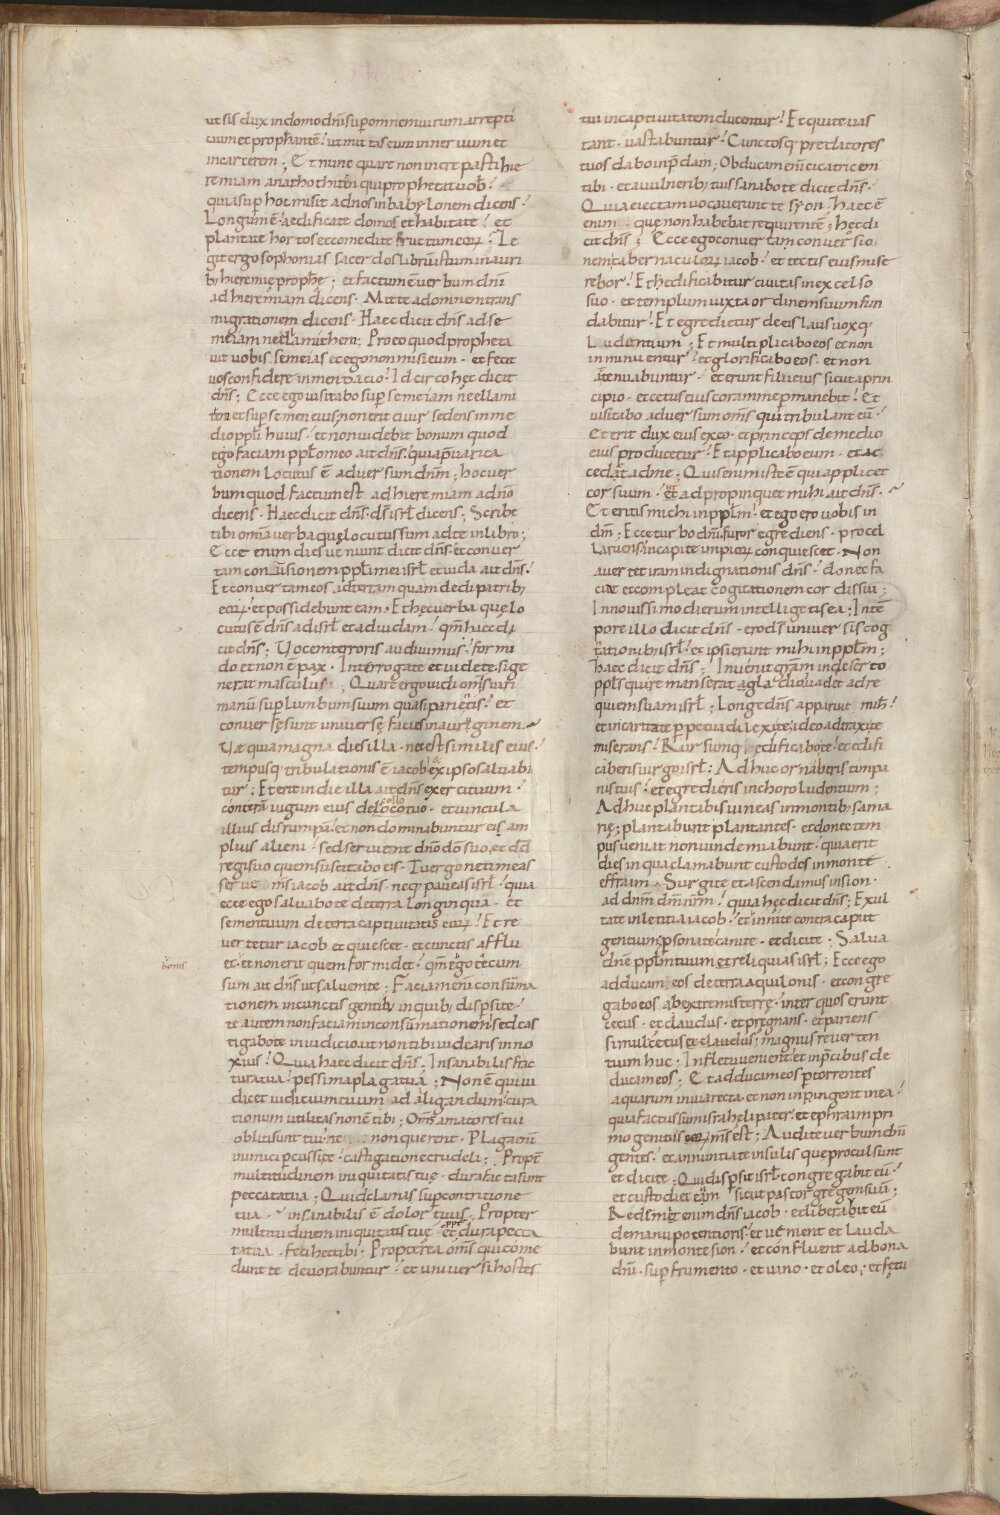 ut sis dux in domo dñi sup omnem uirum arrepti
cium et prophantẽ ut mittas eum in neruum et
in carcerem ; Et nunc quare non increpasti hie
remiam anathothitẽ qui prophetat uob̄ ·
quia sup hoc misit ad nos in babylonem dicens ·
Longum ẽ · aedificate domos et habitate et
plantate hortos et comedite fructum eorꝝ · Le
git ergo sophonias sacerdos librũ istum in auri
bꝫ hieremię prophę · et factum ẽ uerbum dñi
ad hieremiam dicens · Mitte ad omnem trans
migrationem dicens · Haec dicit dñs ad se
meiam neelamithen ; Pro eo quod propheta
uit uobis semeias et ego non misi eum · et fecit
uos confidere in mendacio Idcirco hęc dicit
dñs ; Ecce ego uisitabo sup semeiam neellami
ten et sup semen eius non erit ei uir sedens in me
dio ppłi huius et non uidebit bonum quod
ego faciam ppło meo ait dñs quia p̃uarica
tionem locutus ẽ aduersum dñm ; hoc uer
bum quod factum est ad hieremiam a dño
dicens · Haec dicit dñs ds isrł dicens ; Scribe
tibi omnia uerba quę locutus sum ad te in libro ;
Ecce enim dies ueniunt dicit dñs et conuer
tam conuersionem ppłi mei isrł et iuda ait dñs ·
Et conuertam eos ad terram quam dedi patribꝫ
eorꝝ et possidebunt eam · Et hec uerba quę lo
cutus ẽ dñs ad isrł et ad iudam qm̃ haec di
cit dñs ; Uocem terroris audiuimus formi
do et non ẽ pax · Interrogate et uidete si ge
nerat masculus ; Quare ergo uidi omñs uiri
manũ sup lumbum suum quasi parientis et
conuersę sunt uniuersę facies in auruginem
Uae quia magna dies illa · nec est similis eius ·
tempusq; tribulationis ẽ iacob et ex ipso saluabi
tur ; Et erit in die illa ait dñs exercituum ·
conterã iugum eius de collo tuo · et uincula
illius disrumpã et non dominabuntur eis am
plius alieni sed seruient dño do suo et dd
regi suo quem suscitabo eis · Tu ergo ne timeas
serue ms iacob ait dñs · neq; paueas isrł quia
ecce ego saluabo te de terra longinqua · et
semen tuum de terra captiuitatis eorꝝ Et re
uertetur iacob et quiescet · et cunctis afflu
et bonis et non erit quem formidet qm̃ ego tecum
sum ait dñs ut saluem te · Faciam eni consũma
tionem in cunctis gentibꝫ in quibꝫ dispsi te
te autem non faciam in consũmationem sed cas
tigabo te in iudicio ut non tibi uidearis inno
xius Quia haec dicit dñs · Insanabilis frac
tura tua pessima plaga tua ; Non ẽ qui iu
dicet iudicium tuum ad alligandum cura
tionum utilitas non ẽ tibi ; Omñs amatores tui
obliti sunt tui ne non querent · Plaga enĩ
inimici percussi te castigatione crudeli ; Propt̃
multitudinem iniquitatis tuę dura facta sunt
peccata tua ; Quid clamas sup contritione
tua insanabilis ẽ dolor tuus · Propter
multitudinem iniquitatis tuę et ppt dura pecca
ta tua feci hec tibi ; Propterea omñs qui come
dunt te deuorabuntur et uniuersi hostes
tui in captiuitatem ducentur Et qui te uas
tant · uastabuntur Cunctosq; predatores
tuos dabo in p̃dam ; Obducam eni cicatricem
tibi · et a uulneribꝫ tuis sanabo te dicit dñs ·
Quia eiectam uocauerunt te syon haec ẽ
enim que non habebat requirentẽ ; hęc di
cit dñs ; Ecce ego conuertam conuersio
nem tabernaculorꝝ iacob et tectis eius mise
rebor Et hedificabitur ciuitas in excelso
suo · et templum iuxta ordinem suum fun
dabitur Et egredietur de eis laus uoxq;
Ludentium ; Et multiplicabo eos et non
inminuentur et glorificabo eos · et non
attenuabuntur et erunt filii eius sicut a prin
cipio · et cetus eius coram me permanebit Et
uisitabo aduersum oms qui tribulant eũ
Et erit dux eius ex eo · et princeps de medio
eius producetur Et applicabo eum · et ac
cedat ad me ; Quis enim iste ẽ qui applicet
cor suum ut adpropinquet mihi ait dñs ·
Et eritis michi in ppłm · et ego ero uobis in
dm̃ ; Ecce turbo dñi furor egrediens · procel
la ruens in capite impiorꝝ conquiescet · Non
auertet iram indignationis dñs donec fa
ciat et compleat cogitationem cordis sui ;
In nouissimo dierum intelligetis ea ; In tem
pore illo dicit dñs · ero ds uniuersis cog
nationibꝫ isrł et ipsi erunt mihi in ppłm ;
haec dicit dñs ; Inuenit grãm in deserto
ppłs qui remanserat a gladio uadet ad re
quiem suam isrł ; Longe dñs apparuit mihi
et in caritate perpetua dilexi te ideo adtraxi te
miserans Rursumq; ędificabo te et edifi
caberis uirgo isrł ; Adhuc ornaberis timpa
nis tuis et egredieris in choro ludentium ;
Adhuc plantabis uineas in montibꝫ sama
rię ; plantabunt plantantes · et donec tem
pus ueniat non uindemiabunt quia erit
dies in qua clamabunt custodes in monte
effraim · Surgite et ascendamus in sion ·
ad dnm̃ dm̃ nrm̃ quia hęc dicit dñs ; Exul
tate in letitia iacob et innuite contra caput
gentium personate canite · et dicite ; Salua
dñe ppłm tuum et reliquias isrł ; Ecce ego
adducam eos de terra aquilonis · et congre
gabo eos ab extremis terrę inter quos erunt
cecus · et claudus · et pręgnans · et pariens
simul cetus et claudus ; magnus reuerten
tium huc ; In fletu uenient et in p̃cibus de
ducam eos ; Et adducam eos p torrentes
aquarum in uia recta et non inpingent in ea
quia factus sum israheli pater et ephraim pri
mogenitus ms est ; Audite uerbum dñi
gentes · et annuntiate insulis que procul sunt
et dicite ; Qui dispsit isrł congregabit eũ
et custodiet eum sicut pastor gregem suũ ;
Redemit enim dñs iacob · et liberabit eũ
de manu potentioris et uenient et lauda
bunt in monte sion et confluent ad bona
dñi · sup frumento · et uino · et oleo ; et fetu
bonis